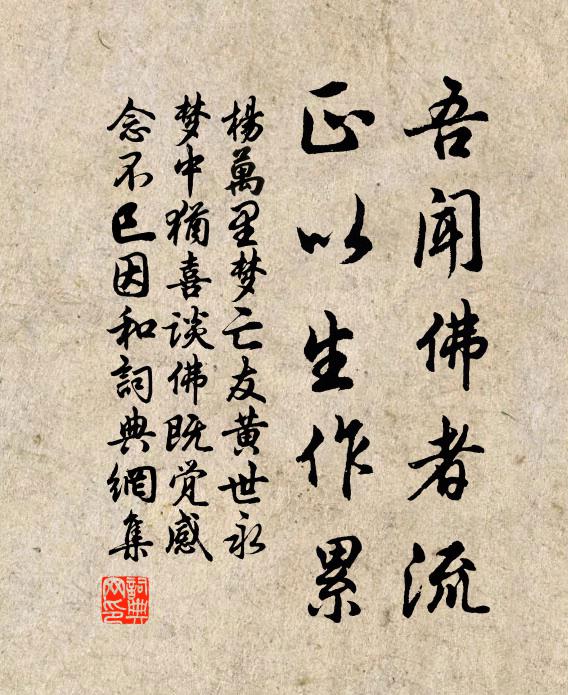 吾闻佛者流
正以生作累
楊萬里梦亡友黄世永
梦中猶喜谈佛既觉感
念不已因和詞典網集
詞典网印